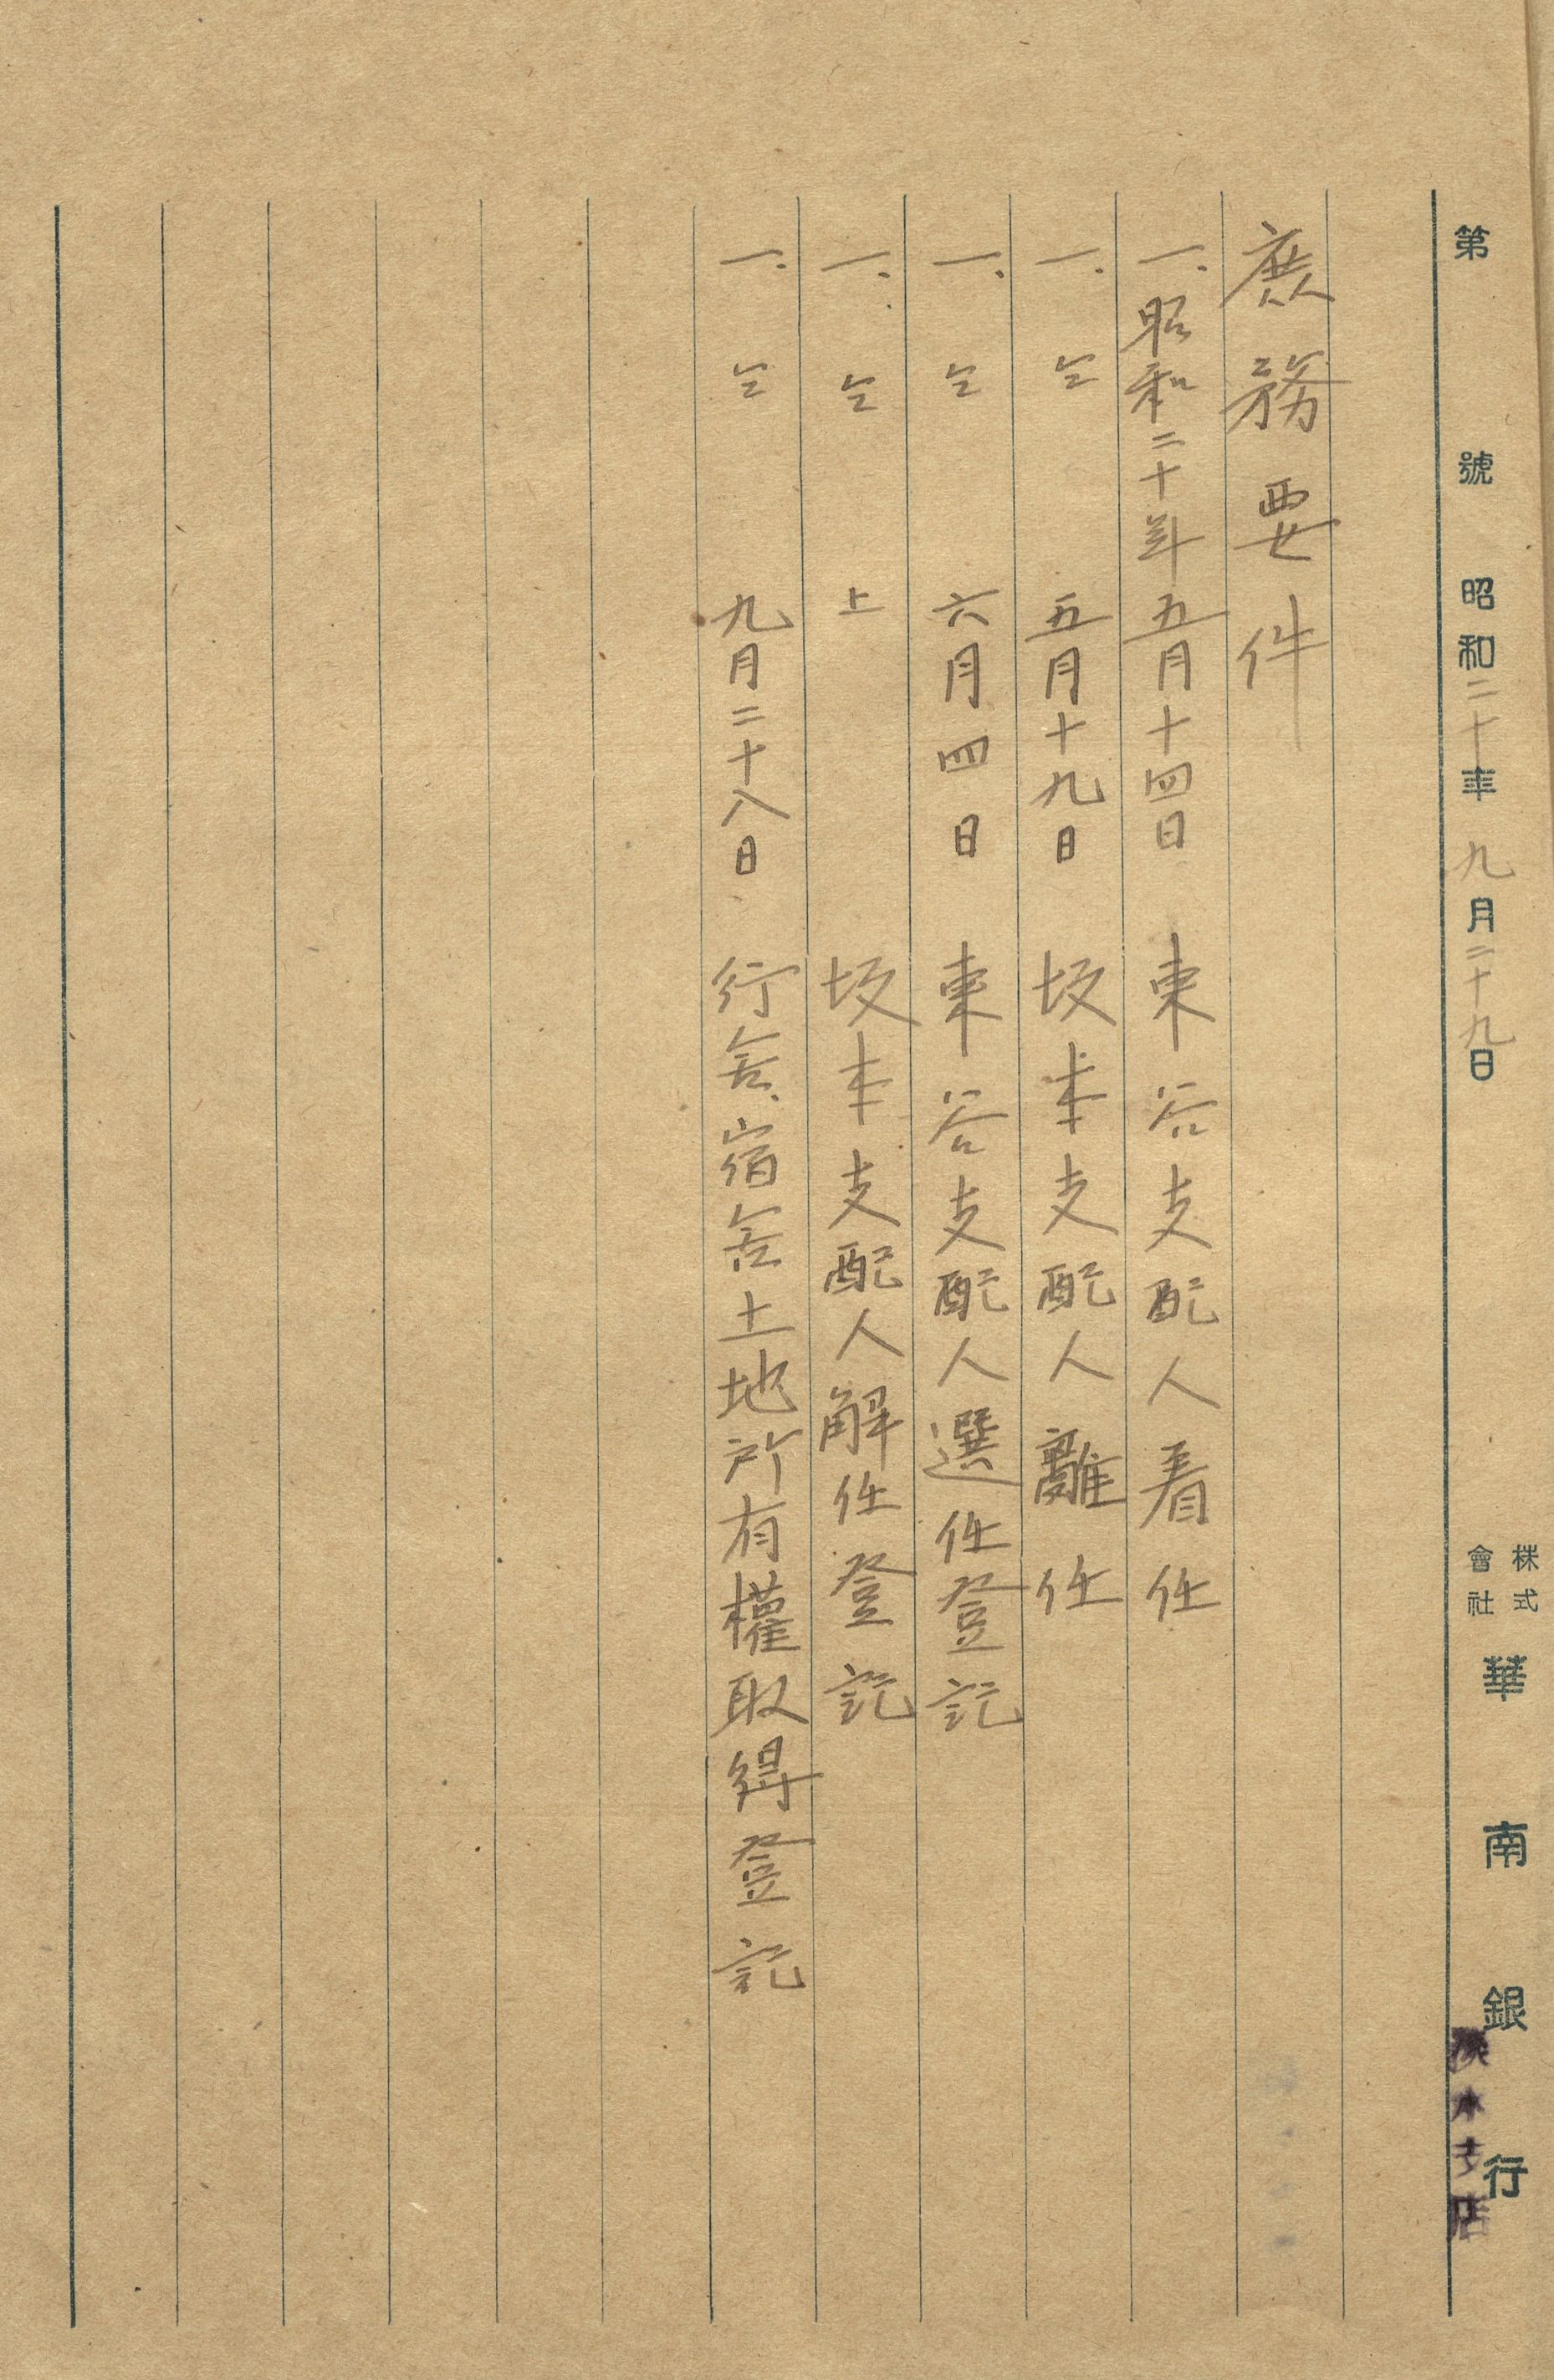 第 號 昭和二十年九月二十九日 株式會社華南銀行
淡水支店
庶務要件
一、昭和二十年五月十四日 東谷支配人着任
一、仝 五月十九日 坂本支配人離任
一、仝 六月四日 東谷支配人選任登記
一、仝 上 坂本支配人解任登記
一、仝 九月二十八日 行舍、宿舍土地所有權取得登記